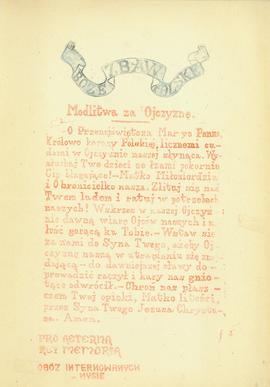 BOŻE ZBAW POLSKĘ
Modlitwa za Ojczyznę.
- O Przenajświętsza Maryo Panno,
Królowo korony Polskiej, licznemi cu-
dami w Ojczyznie naszej słynąca. Wy-
słuchaj Twe dzieci ze łzami pokornie
Cię błagające! - Matko Miłosierdzia
i Obronicielko nasza. Zlituj się nad
Twem ludem i ratuj w potrzebach
naszych! Wskrześ w naszej Ojczyź-
nie dawną wiarę Ojców naszych i mi-
łość gorącą ku Tobie. - Wstaw się
za nami do Syna Twego, ażeby Oj-
czyznę naszą w utrapieniu się znaj-
dującą - do dawniejszej sławy do-
prowadzić raczył i kary nas gnio-
tące odwrócił. - Chroń nas płasz-
czem Twej opieki, Matko litości,
przez Syna Twego Jezusa Chrystu-
sa. Amen.
PRO AETERNA
REI MEMORIA
OBÓZ INTERNOWANYCH
W NYSIE